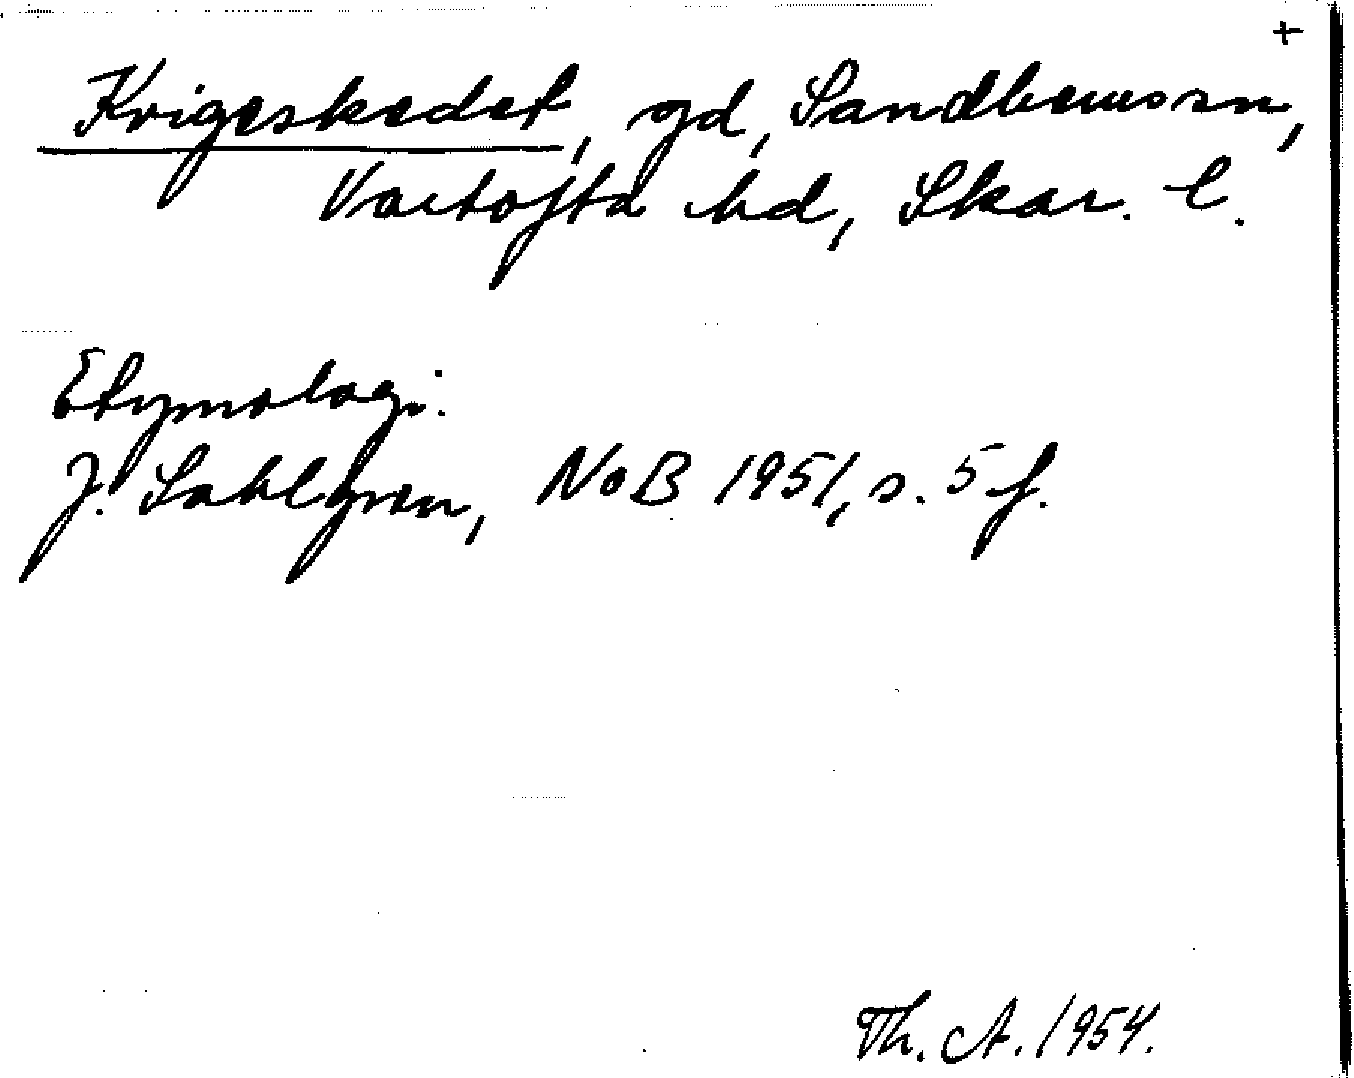 +
Kvigeskedet, gd, Sandhemssn,
Vartofta hd, Skar. l.
Etymologi:
J. Sahlgren, NoB 1951, s. 5 f.
Th. A. 1954.